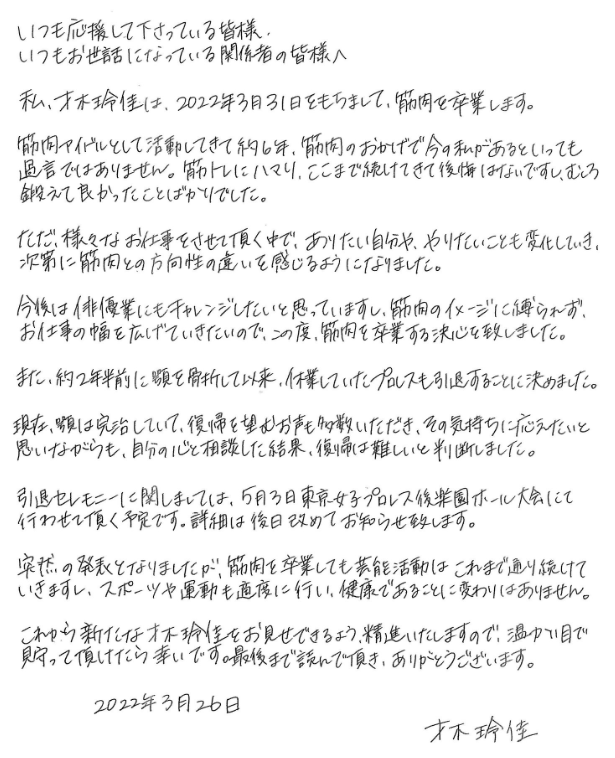 いつも応援して下さっている皆様、
いつもお世話になっている関係者の皆様へ
私、才木玲佳は、2022年3月31日をもちまして、筋肉を卒業します。
筋肉アイドルとして活動してきて約6年、筋肉のおかげで今の私があるといっても
過言ではありません。筋トレにハマり、ここまで続けてきて後悔はないですし、むしろ
鍛えて良かったことばかりでした。
ただ、様々なお仕事をさせて頂く中で、ありたい自分や、やりたいことも変化していき、
次第に筋肉との方向性の違いを感じるようになりました。
今後は俳優業にもチャレンジしたいと思っていますし、筋肉のイメージに縛られず、
お仕事の幅を広げていきたいので、この度、筋肉を卒業する決心を致しました。
また、約2年半前に顎を骨折して以来、休業していたプロレスも引退することに決めました。
現在、顎は完治していて、復帰を望むお声も多数いただき、その気持ちに応えたいと
思いながらも、自分の心と相談した結果、復帰は難しいと判断しました。
引退セレモニーに関しましては、5月3日東京女子プロレス後楽園ホール大会にて
行わせて頂く予定です。詳細は後日改めてお知らせ致します。
突然の発表となりましたが、筋肉を卒業しても芸能活動はこれまで通り続けて
いきますし、スポーツや運動も適度に行い、健康であることに変わりはありません。
これから新たな才木玲佳をお見せできるよう、精進いたしますので、温かい目で
見守って頂けたら幸いです。最後まで読んで頂き、ありがとうございます。
2022年3月26日
才木玲佳